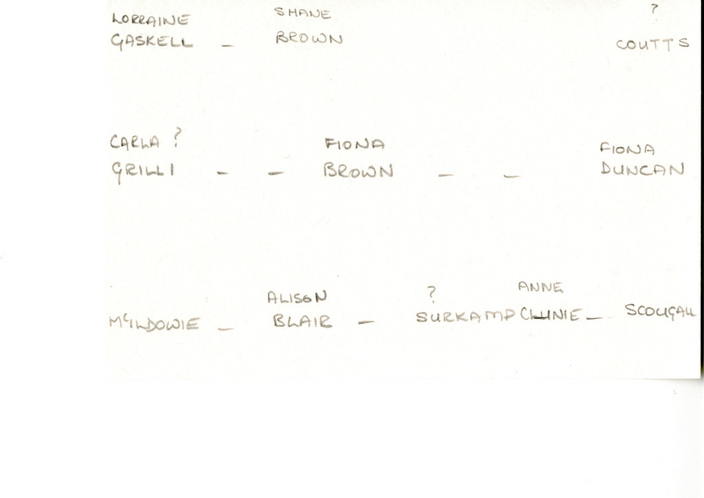 LORRAINE SHANE ?
GASKELL – BROWN COUTTS
CARLA ? FIONA FIONA
GRILLI – – BROWN – – DUNCAN
ALISON ? ANNE
McILDOWIE – BLAIR – SURKAMP CLUNIE – SCOUGALL